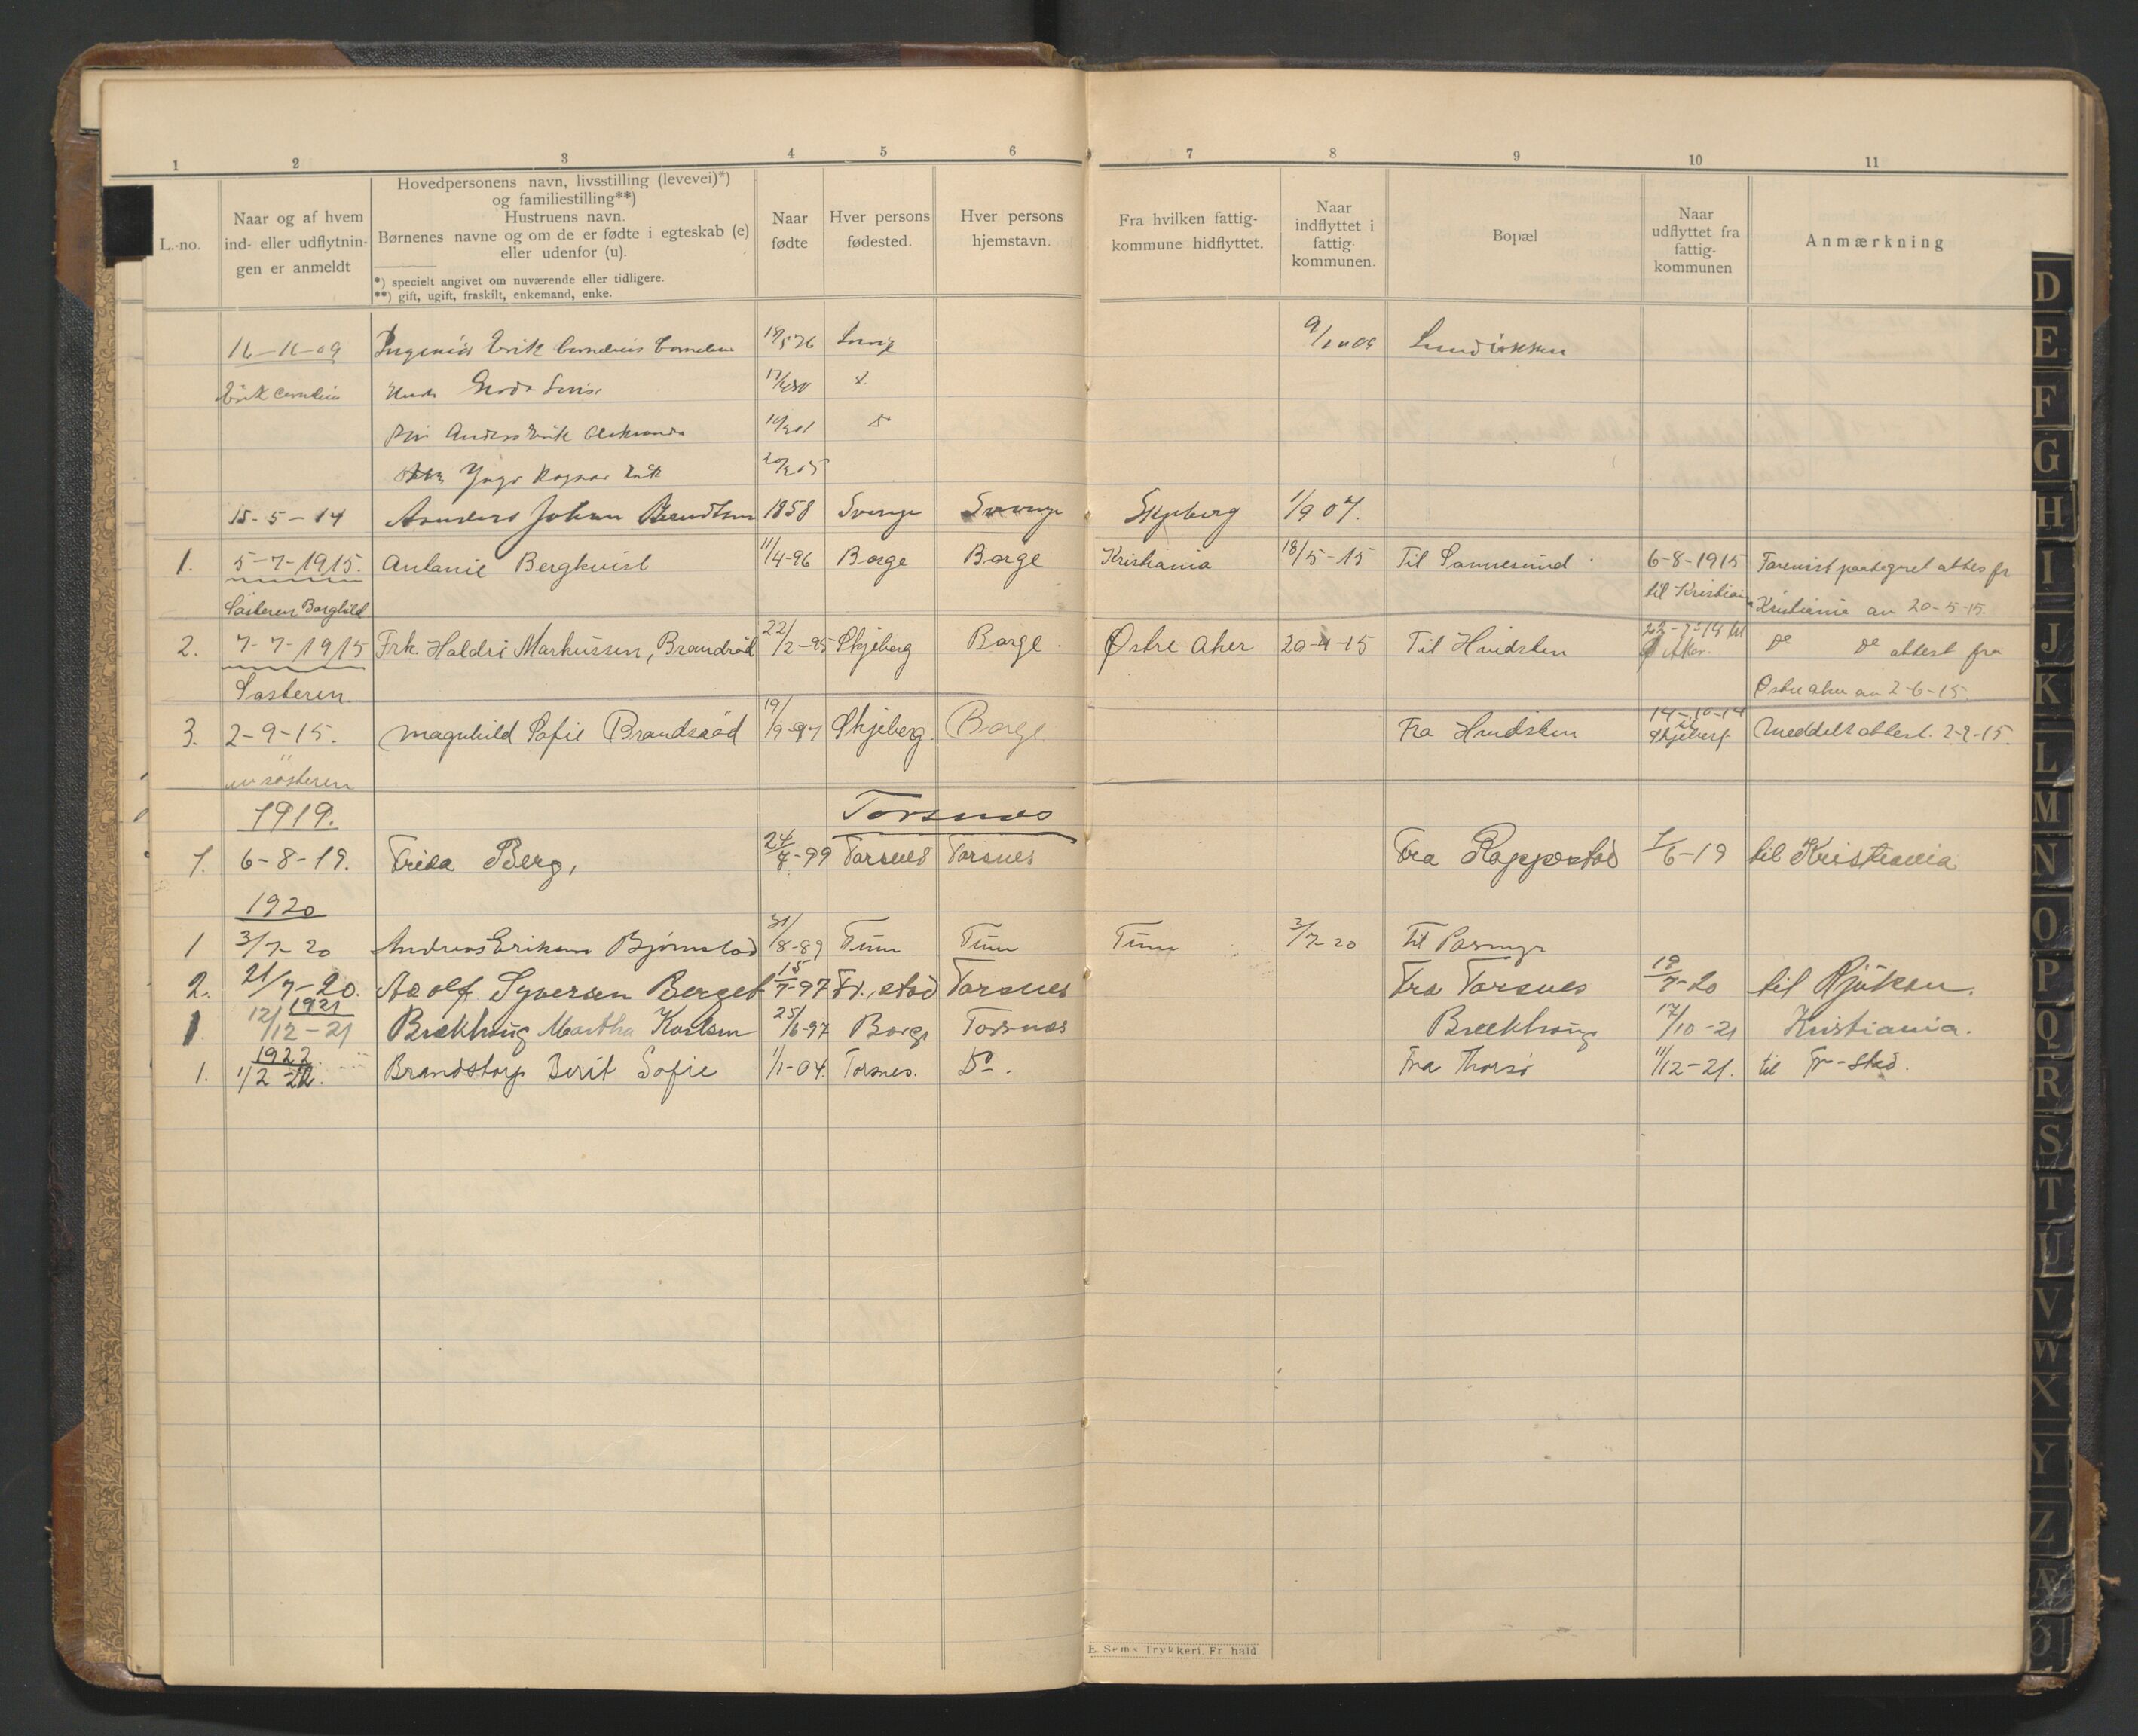 1 2 3 4 5 6 7 8 9 10 11
L.-no.
Naar og af hvem
ind- eller udflytnin-
gen er anmeldt
Hovedpersonens navn, livsstilling (levevei)*)
og familiestilling**)
Hustruens navn.
Børnenes navne og om de er fødte i egteskab (e)
eller udenfor (u).
*) specielt angivet om nuværende eller tidligere.
**) gift, ugift, fraskilt, enkemand, enke.
Naar
fødte
Hver persons
fødested.
Hver persons
hjemstavn.
Fra hvilken fattig-
kommune hidflyttet.
Naar
indflyttet i
fattig-
kommunen.
Bopæl
Naar
udflyttet fra
fattig-
kommunen
Anmærkning
16-11-09 Ingeniør Erik Cornelius
Erik Cornelius
Anders Erik
Yngv Ragnar Erik
15-5-14 Anders Johan Berndtsen 1858 Sverige Sverige Skjeberg 1/9 07.
1. 5-7-1915. Antanie Bergkvist 11/4-96 Borge Borge Kristiania 18/5-15 Til Sannesund 6-8-1915
Søsteren Borghild til Kristiania Kristiania av 20-5-15.
2. 7-7-1915 Frk. Haldri Markussen, Brandrød 22/2-95 Skjeberg Borge Østre Aker 20-4-15 Til Hvidsten Ø Aker. do do attest fra
Søsteren Østre Aker av 2-6-15
3. 2-9-15. Magnhild Sofie Brandsrød 19/9-97 Skjeberg. Borge. Fra Hvidsten 14-10-14 til Skjeberg Meddelt attest. 2-9-15.
av søsteren
1919. Torsnes
1. 6-8-19. Frida Berg, Torsnes Torsnes Fra Rappestad 1/6-19 til Kristiania
1920
1 3/7-20 Andreas Eriksen Bjørnstad 31/8-89 Tune Tune Tune 3/7-20 Til
2. 21/7-20. Adolf Syversen Berget 15/7-97 Fr.stad Torsnes Fra Torsnes 19/7-20 til Rjukan.
1921
1 12/12-21 Brækhaug Martha Karlsen 25/6-97 Borge Torsnes Brækhaug 17/10-21 Kristiania.
1922
1. 1/2-22. Brandstorp Berit Sofie 1/1-04. Torsnes. Do. Fra Thorsø 11/12-21. til Fr-stad.
E. Sems Trykkeri. Fr.hald
D
E
F
G
H
I
J
K
L
M
N
O
P
Q
R
S
T
U
V
W
X
Y
Z
Æ
Ø